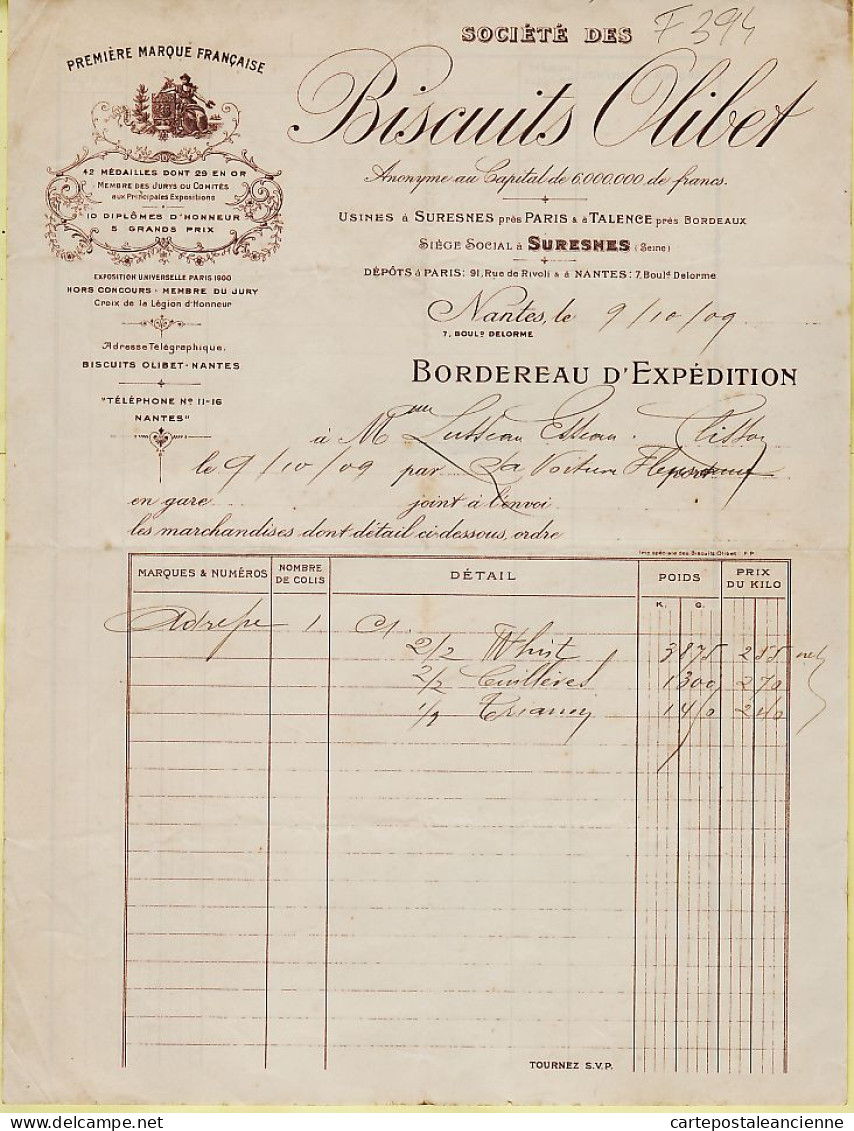 SOCIÉTÉ DES F 394
PREMIÈRE MARQUE FRANÇAISE
Biscuits Olibet
42 MÉDAILLES DONT 29 EN OR
MEMBRE DES JURYS OU COMITÉS
aux Principales Expositions
10 DIPLÔMES D'HONNEUR
5 GRANDS PRIX
Anonyme au Capital de 6.000.000 de francs.
USINES à SURESNES près PARIS & à TALENCE près BORDEAUX
SIÈGE SOCIAL à SURESNES (Seine)
DÉPÔTS à PARIS: 91, Rue de Rivoli & à NANTES: 7, Boulᵈ Delorme
EXPOSITION UNIVERSELLE PARIS 1900
HORS CONCOURS - MEMBRE DU JURY
Croix de la Légion d'Honneur
Nantes, le 9/10/09
7, BOULᵈ DELORME
Adresse Télégraphique.
BISCUITS OLIBET-NANTES
"TÉLÉPHONE Nº 11-16
NANTES"
BORDEREAU D'EXPÉDITION
à M
le 9/10/09 par La Voiture
en gare joint à l'envoi
les marchandises dont détail ci-dessous, ordre
Imp. spéciale des Biscuits Olibet - P.P.
MARQUES & NUMÉROS NOMBRE DE COLIS DÉTAIL POIDS PRIX DU KILO
K. G.
Adresse 1 C/.
2/2 Whist 3875 255 net
2/2 Cuillères 1300 270
1/2 Trianon 1450 240
TOURNEZ S.V.P.
cartepostaleancienne